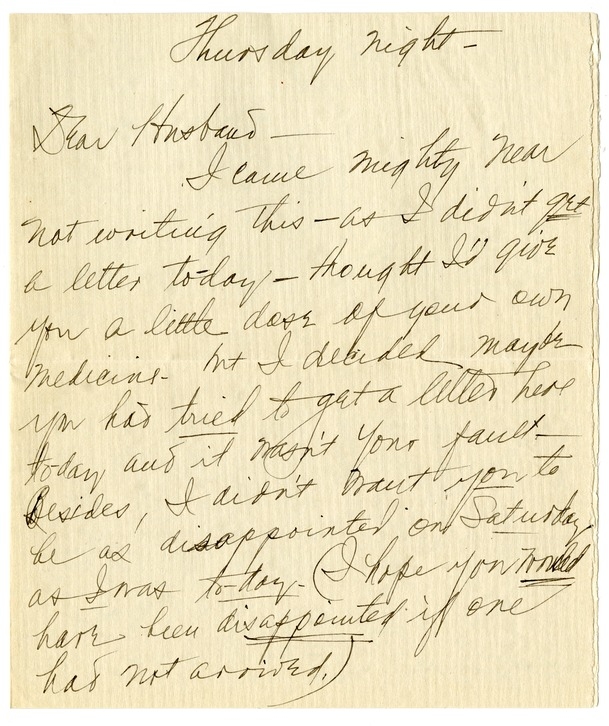 Thursday night -
Dear Husband -
I came mighty near
not writing this - as I didn't get
a letter to-day - thought I'd give
you a little dose of your own
medicine - but I decided maybe
you had tried to get a letter here
today and it wasn't your fault -
Besides, I didn't want you to
be as disappointed on Saturday
as I was to-day. (I hope you would
have been disappointed if one
had not arrived.)